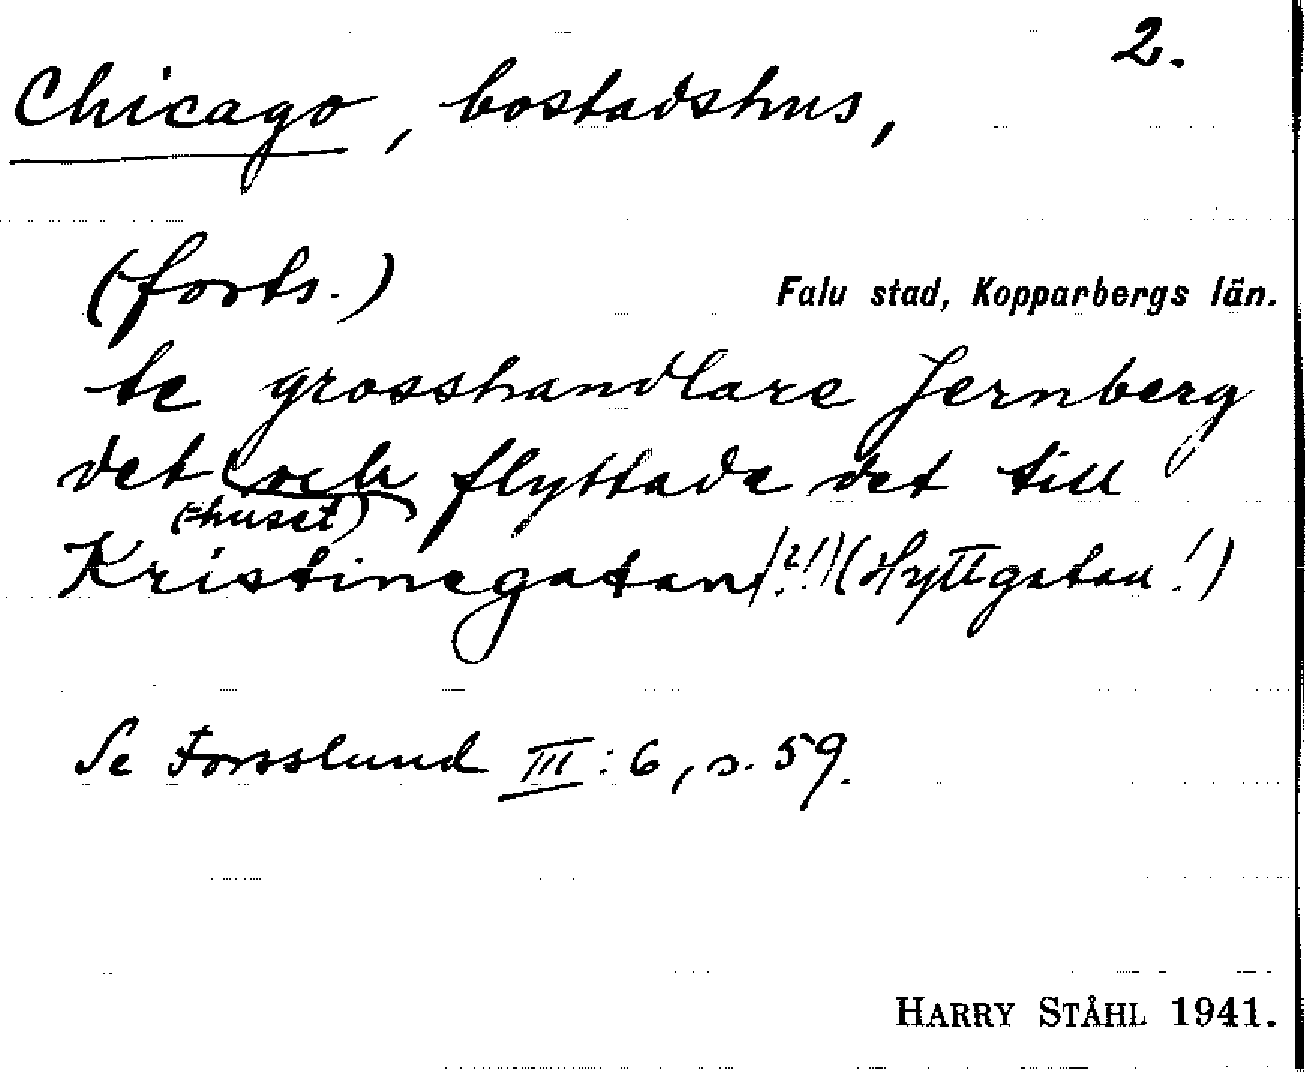 2.
Chicago, bostadshus,
(forts.)
Falu stad, Kopparbergs län.
te grosshandlare Jernberg
det och flyttade det till
(=huset)
Kristinegatan (?!) (Hyttgatan!)
Se Forsslund III:6, s. 59.
HARRY STÅHL 1941.